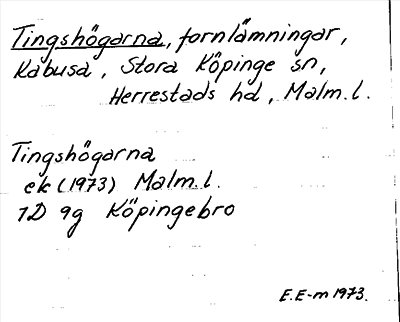 Tingshögarna, fornlämningar,
Kabusa, Stora Köpinge sn,
Herrestads hd, Malm.l.
Tingshögarna
ek (1973) Malm.l.
1D 9g Köpingebro
E.E-m 1973.